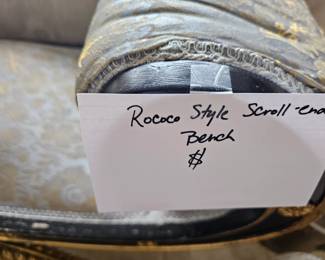 Rococo Style Scroll-end
Bench
$